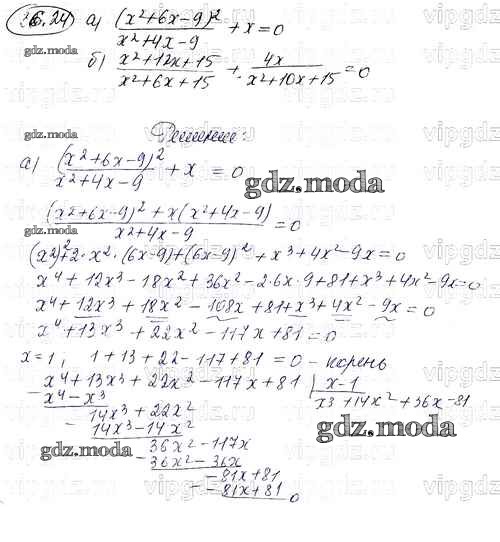 26.24 а) (x²+6x-9)²/(x²+4x-9) + x = 0
gdz.moda
б) (x²+12x+15)/(x²+6x+15) + 4x/(x²+10x+15) = 0
Решение:
gdz.moda
а) (x²+6x-9)²/(x²+4x-9) + x = 0
gdz.moda
((x²+6x-9)² + x(x²+4x-9))/(x²+4x-9) = 0
(x²)²+2·x²·(6x-9)+(6x-9)²+x³+4x²-9x=0
x⁴+12x³-18x²+36x²-2·6x·9+81+x³+4x²-9x=0
x⁴+12x³+18x²-108x+81+x³+4x²-9x=0
x⁴+13x³+22x²-117x+81=0
x=1, 1+13+22-117+81=0 - корень
x⁴+13x³+22x²-117x+81 | x-1
x⁴-x³ x³+14x²+36x-81
14x³+22x²
14x³-14x²
gdz.moda
gdz.moda
36x²-117x
36x²-36x
-81x+81
-81x+81
0
gdz.moda
vipgdz